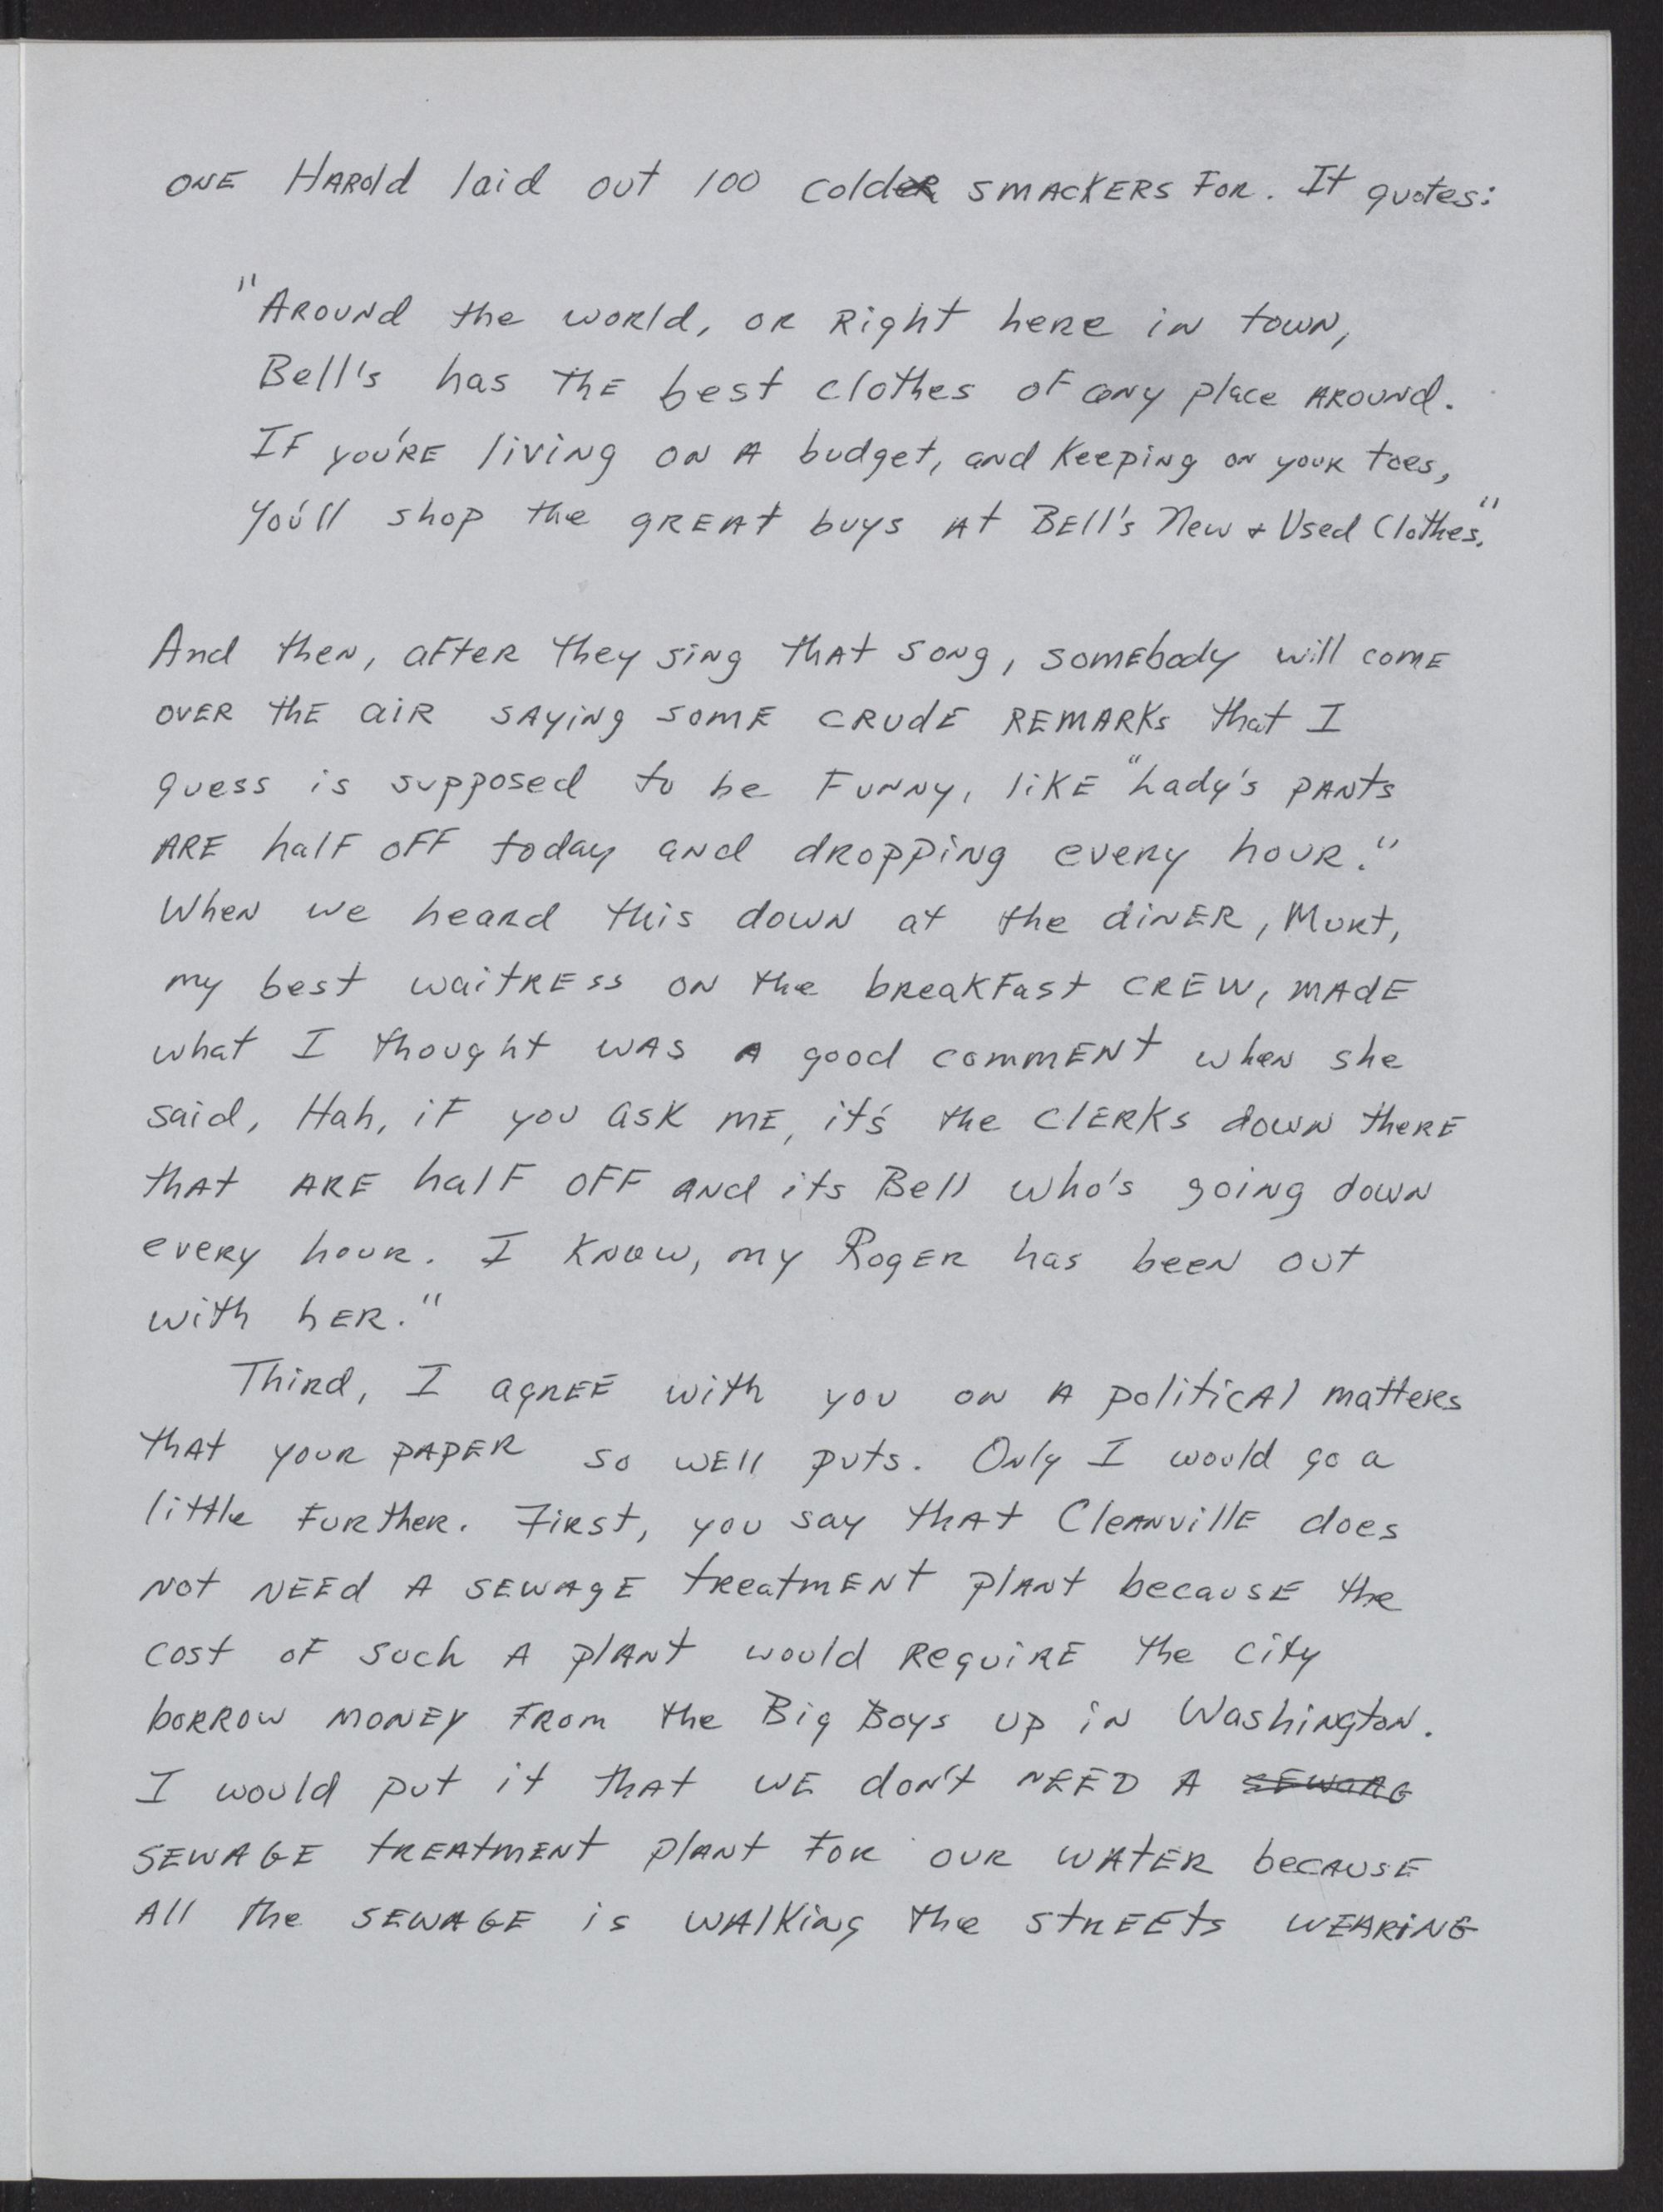 ONE Harold laid out 100 cold smackers for. It quotes:
"Around the world, or right here in town,
Bell's has the best clothes of any place around.
If you're living on a budget, and keeping on your toes,
You'll shop the great buys at Bell's New + Used Clothes."
And then, after they sing that song, somebody will come
over the air saying some crude remarks that I
guess is supposed to be funny, like "Lady's pants
are half off today and dropping every hour."
When we heard this down at the diner, Murt,
my best waitress on the breakfast crew, made
what I thought was a good comment when she
said, Hah, if you ask me, it's the clerks down there
that are half off and its Bell who's going down
every hour. I know, my Roger has been out
with her."
Third, I agree with you on a political matters
that your paper so well puts. Only I would go a
little further. First, you say that Cleanville does
not need a sewage treatment plant because the
cost of such a plant would require the city
borrow money from the Big Boys up in Washington.
I would put it that we don't need a sewarg
sewage treatment plant for our water because
all the sewage is walking the streets wearing